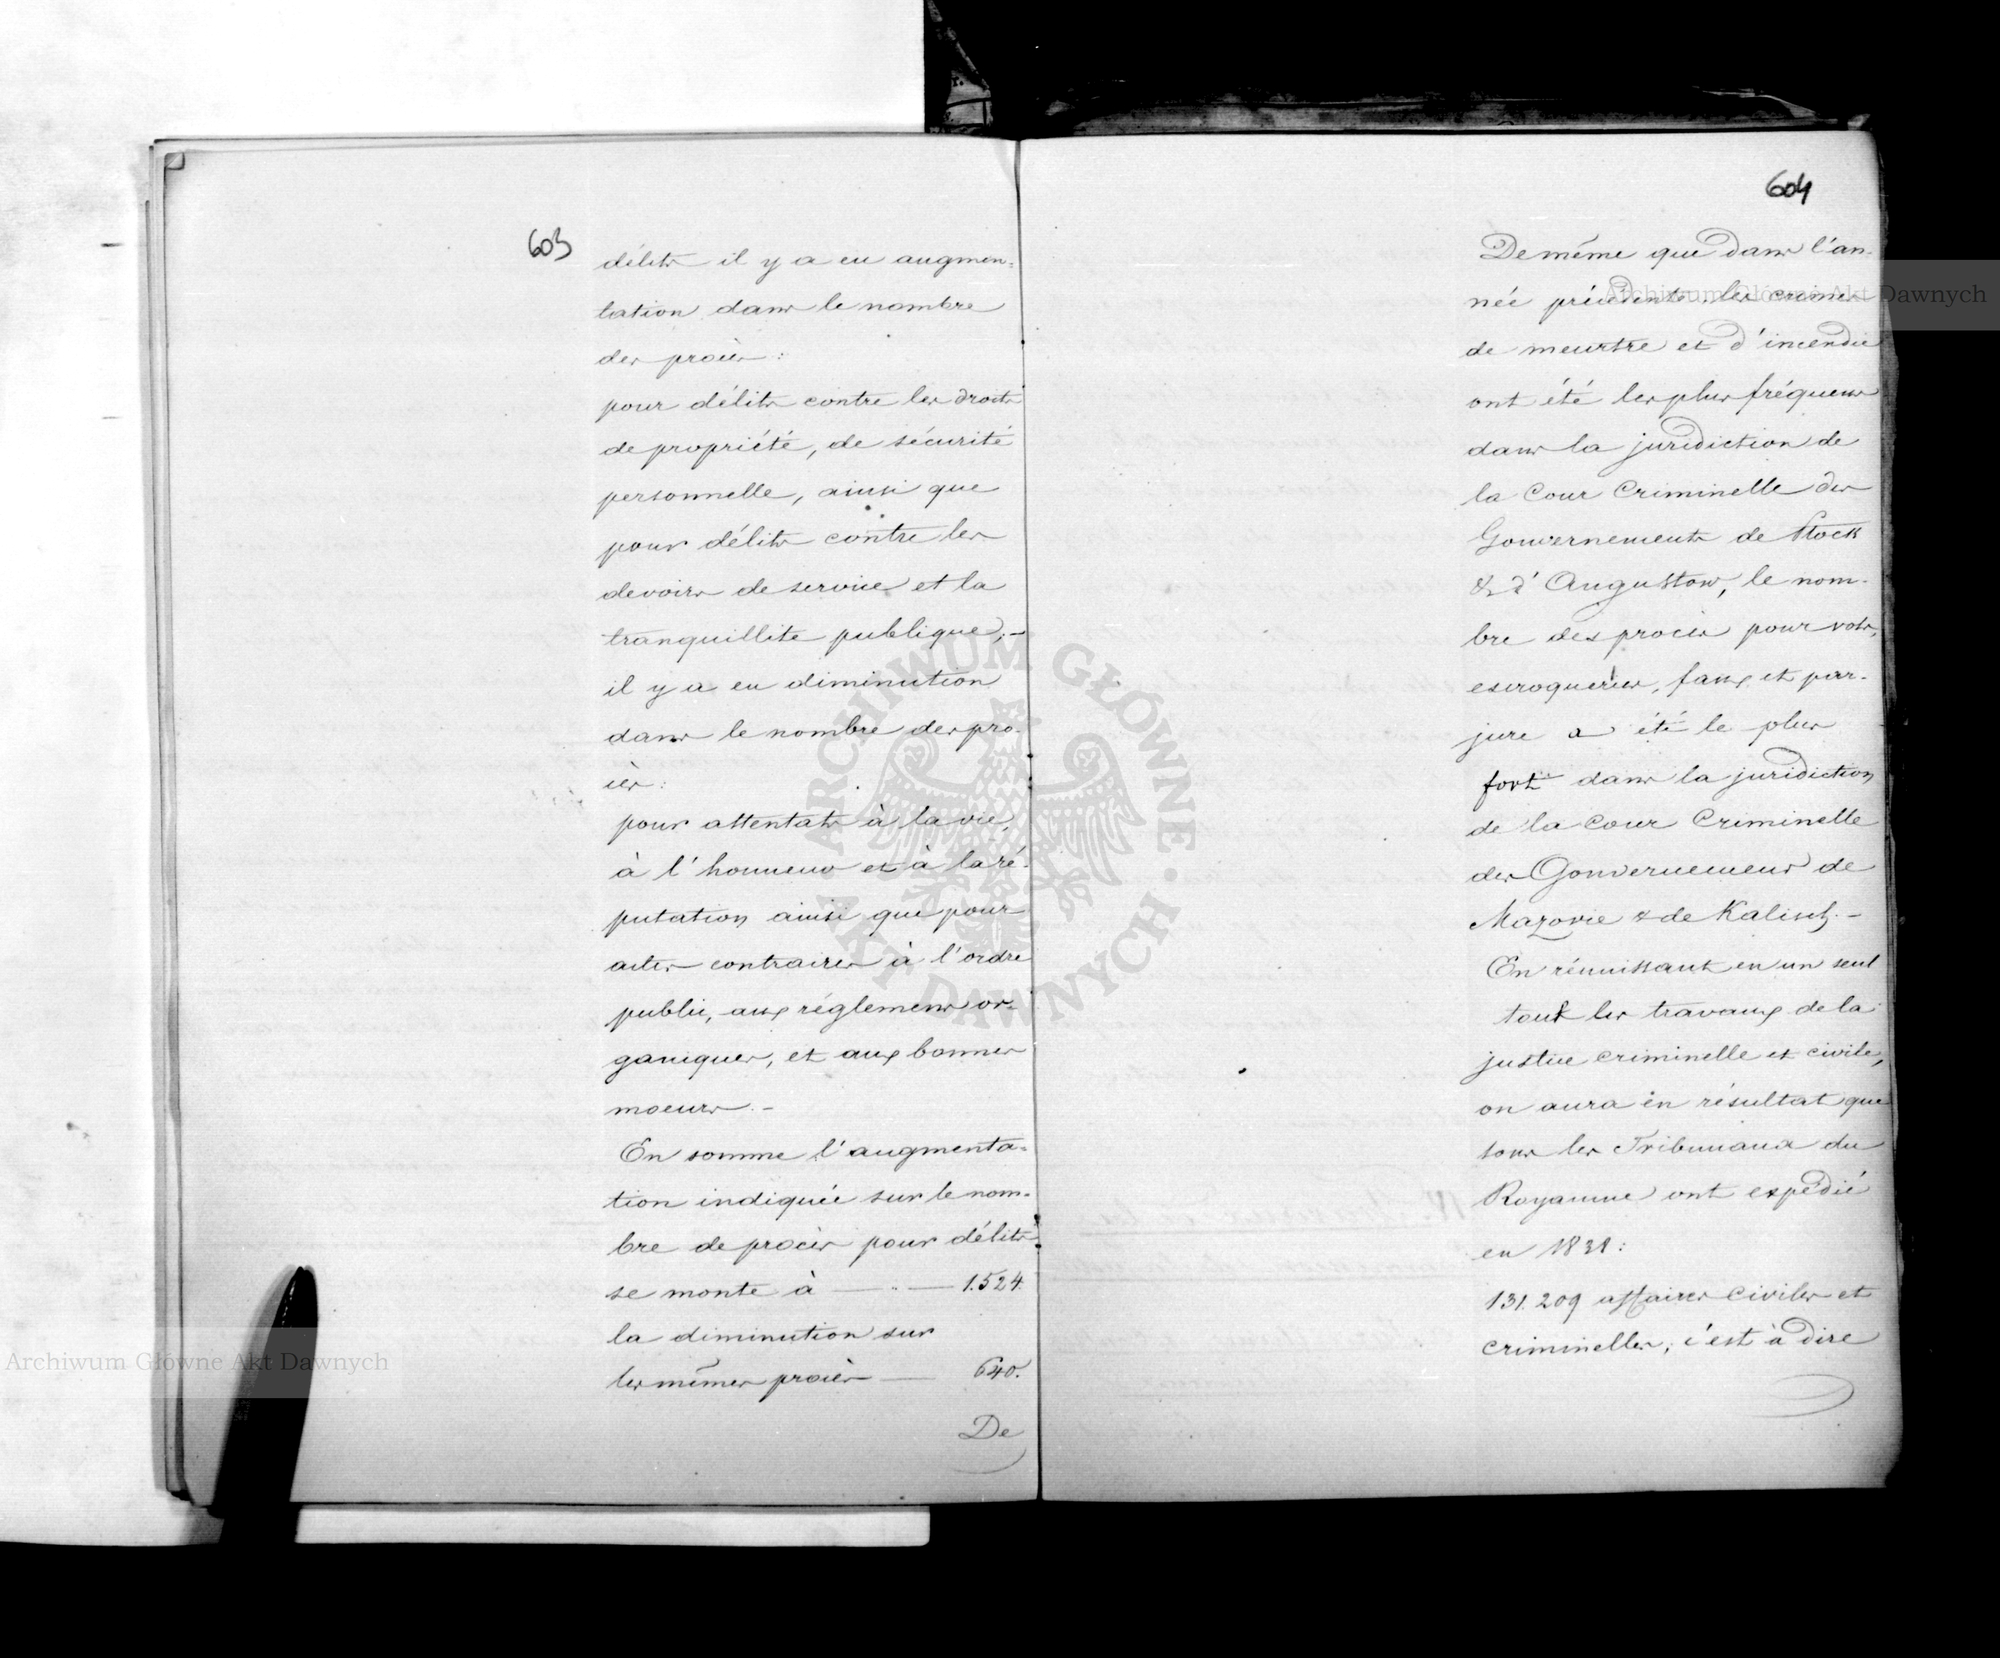 603
délits il y a eu augmen-
tation dans le nombre
des procès :
pour délits contre les droits
de propriété, de sécurité
personnelle, ainsi que
pour délits contre les
devoirs de service et la
tranquillité publique; –
il y a eu diminution
dans le nombre des pro-
cès :
pour attentats à la vie,
à l'honneur et à la ré-
putation ainsi que pour
actes contraires à l'ordre
public, aux réglemens or-
ganiques, et aux bonnes
moeurs. –
En somme l'augmenta-
tion indiquée sur le nom-
bre de procès pour délits
se monte à — " — 1.524.
la diminution sur
les mêmes procès — 640.
De
604
De même que dans l'an-
née précédente les crimes
de meurtre et d'incendie
ont été les plus fréquens
dans la juridiction de
la Cour Criminelle des
Gouvernements de Plock
& d'Augustow, le nom-
bre des procès pour vols,
escroqueries, faux et par-
jure a été le plus
fort dans la juridiction
de la Cour Criminelle
des Gouvernemens de
Mazovie & de Kalisch. –
En réunissant en un seul
tout les travaux de la
justice criminelle et civile,
on aura en résultat que
tous les Tribunaux du
Royaume ont expédié
en 1838:
131.209 affaires civiles et
criminelles, c'est à dire
Archiwum Główne Akt Dawnych
ARCHIWUM GŁÓWNE AKT DAWNYCH
Archiwum Główne Akt Dawnych